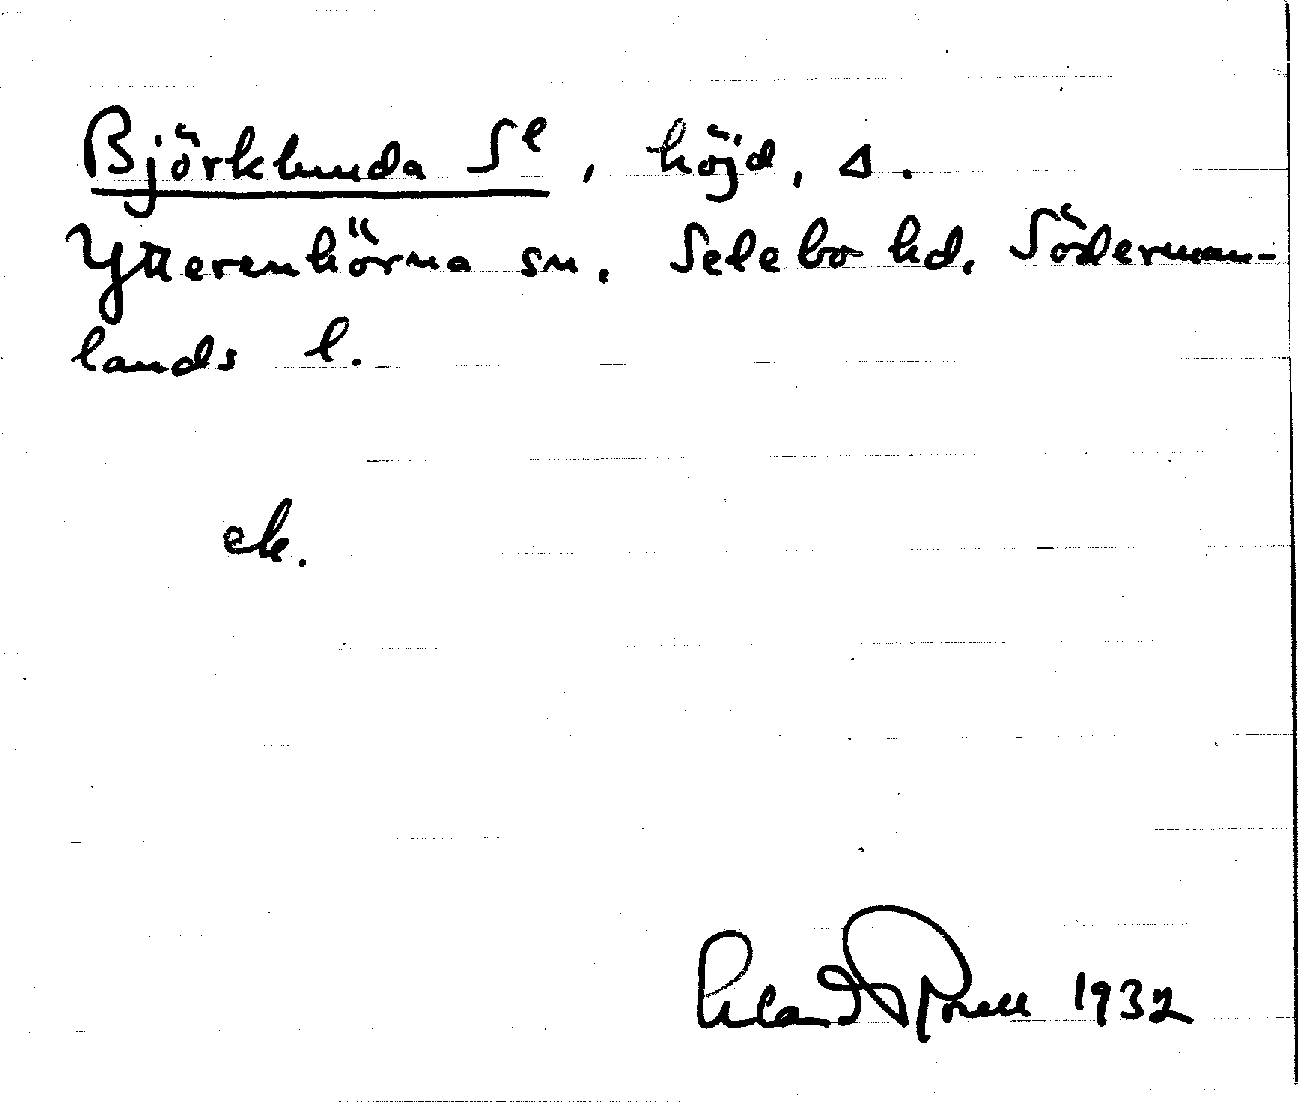 Björklunda Sᵉ, höjd, Δ.
Ytterenhörna sn. Selebo hd. Söderman-
lands l.
ek.
1932